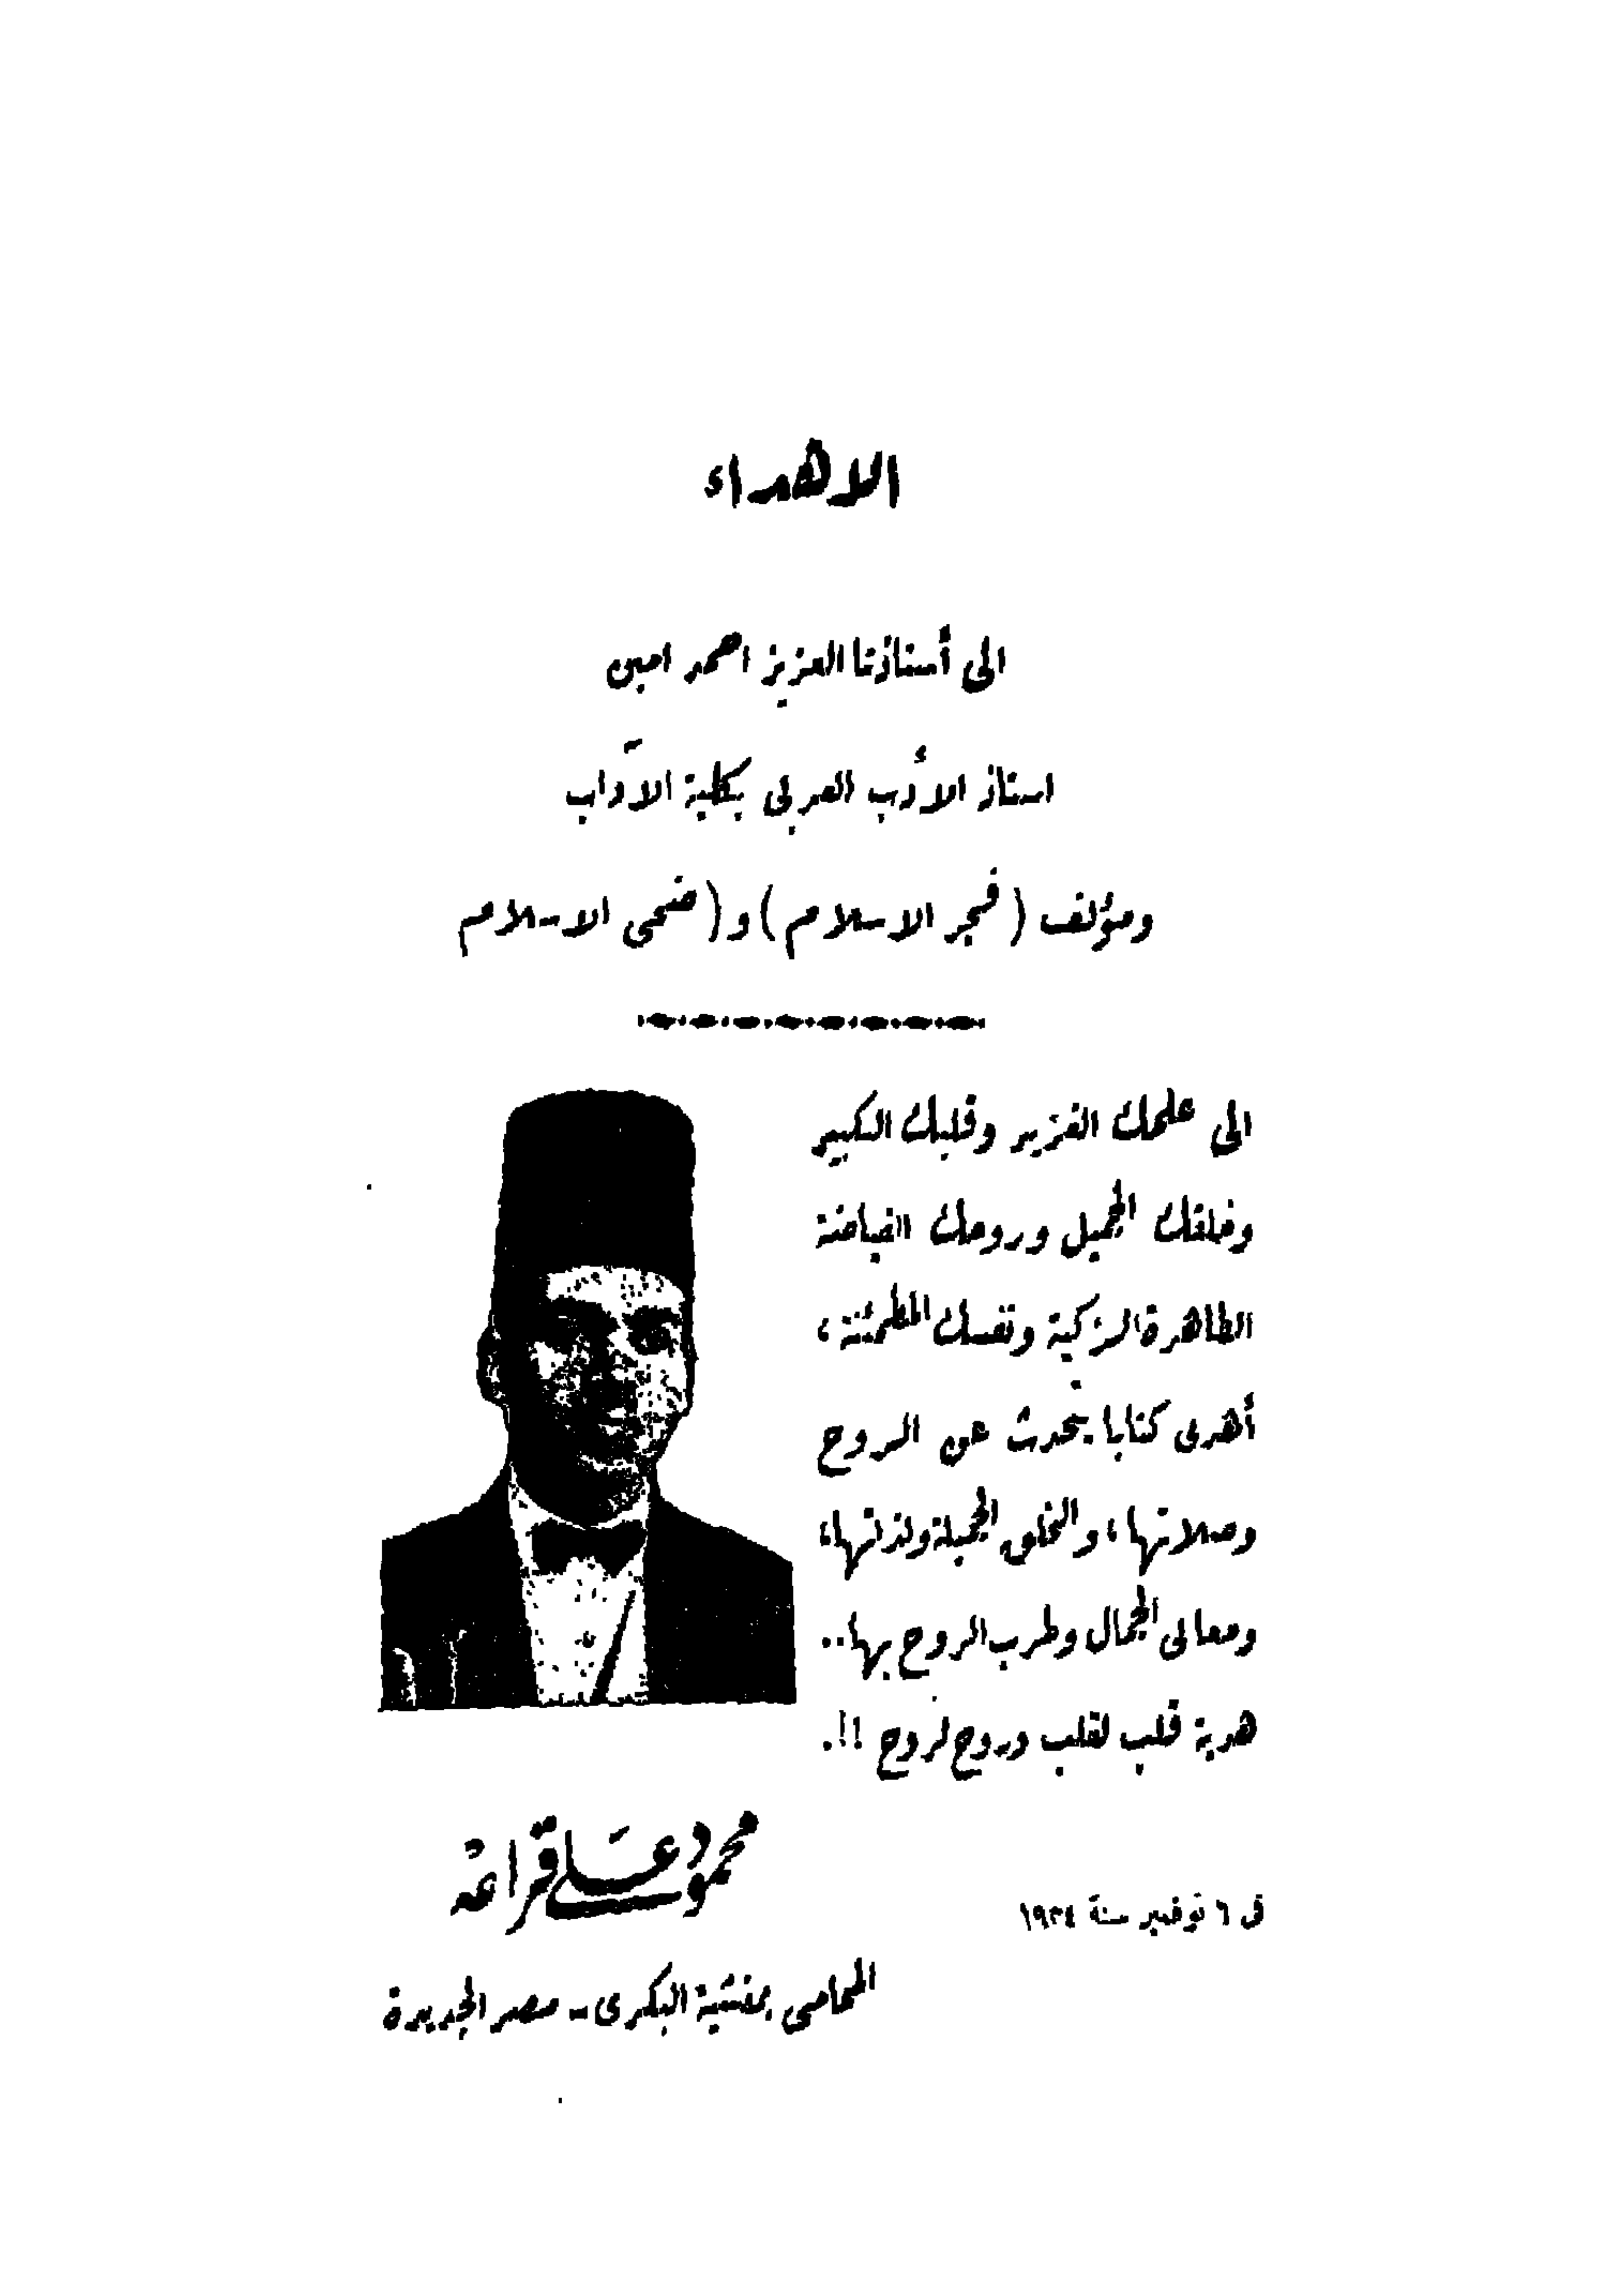 الاهداء
الى أستاذنا العزيز احمد امين
استاذ الأدب العربى بكلية الآداب
ومؤلف (فجر الاسلام) و (ضحى الاسلام
الى علمك الغزير وقلبك الكبير
وخلقك الجميل وروحك الفياضة
الطاهرة الزكية ونفسك المطمئنة،
أهدى كتابا يتحدث عن الروح
وصلاتها، والخلق الجميلة ولذتها،
ومعانى الجمال وطرب الروح بها..
هدية قلب لقلب وروح لروح !!.
محمود على قراعة
فى ٦ نوفمبر سنة ١٩٣٤
المحامى بمنشية البكرى - مصر الجديدة